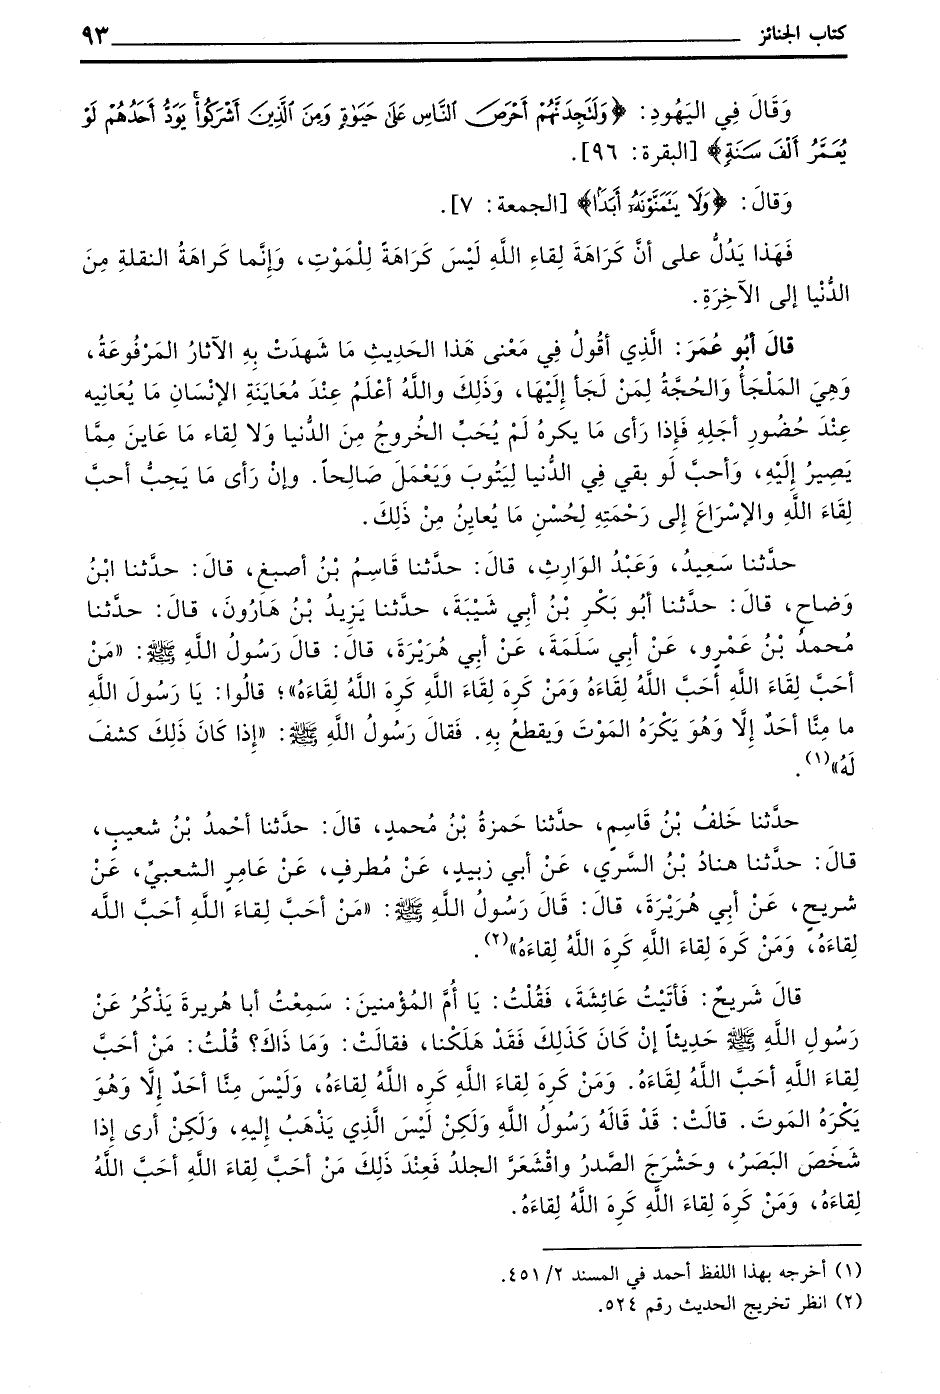 كتاب الجنائز ٩٣
وَقَالَ فِي اليَهُودِ: ﴿وَلَتَجِدَنَّهُمْ أَحْرَصَ النَّاسِ عَلَىٰ حَيَوٰةٍ وَمِنَ الَّذِينَ أَشْرَكُواْ يَوَدُّ أَحَدُهُمْ لَوْ
يُعَمَّرُ أَلْفَ سَنَةٍ﴾ [البقرة: ٩٦].
وَقالَ: ﴿وَلَا يَتَمَنَّوْنَهُۥ أَبَدًا﴾ [الجمعة: ٧].
فَهَذا يَدُلُّ على أنَّ كَرَاهَةَ لِقاءِ اللَّهِ لَيْسَ كَرَاهَةً لِلْمَوْتِ، وَإِنَّما كَراهَةُ النقلةِ مِنَ
الدُّنْيا إلى الآخِرَةِ.
قالَ أبُو عُمَرَ: الَّذِي أقُولُ فِي مَعْنى هَذا الحَدِيثِ مَا شَهِدَتْ بِهِ الآثارُ المَرْفُوعَةُ،
وَهِيَ المَلْجَأُ وَالحُجَّةُ لِمَنْ لَجَأ إلَيْهَا، وَذَلِكَ واللَّهُ أعْلَمُ عِنْدَ مُعَايَنَةِ الإنْسَانِ مَا يُعَانِيه
عِنْدَ حُضُورِ أجَلِهِ فَإذا رَأى مَا يكرهُ لَمْ يُحَبِّ الخُروجُ مِنَ الدنيا وَلا لِقاء مَا عَاينَ مِمَّا
يَصِيرُ إلَيْهِ، وَأحبَّ لَو بقي فِي الدُّنيا لِيَتُوبَ وَيَعْمَلَ صَالِحاً. وإنْ رَأى مَا يَحِبُّ أحبَّ
لِقَاءَ اللَّهِ والإسْرَاعَ إلى رَحْمَتِهِ لِحُسْنِ مَا يُعاينُ مِنْ ذَلِكَ.
حدَّثنا سَعِيدُ، وَعَبْدُ الوَارِثِ، قالَ: حدَّثنا قَاسِمُ بْنُ أصبغ، قالَ: حدَّثنا ابْنُ
وَضاحٍ، قالَ: حدَّثنا أبُو بَكْرِ بْنُ أبِي شَيْبَةَ، حدَّثنا يَزِيدُ بْنُ هَارُونَ، قالَ: حدَّثنا
مُحمدُ بْنُ عَمْرٍو، عَنْ أبي سَلَمَةَ، عَنْ أبِي هُرَيْرَةَ، قالَ: قالَ رَسُولُ اللَّهِ ﷺ: «مَنْ
أحَبَّ لِقَاءَ اللَّهِ أحَبَّ اللَّهُ لِقَاءَهُ وَمَنْ كَرِهَ لِقَاءَ اللَّهِ كَرِهَ اللَّهُ لِقَاءَهُ»؛ قالُوا: يَا رَسُولَ اللَّهِ
ما مِنَّا أحَدٌ إلَّا وَهُوَ يَكْرَهُ المَوْتَ وَيقطعُ بِهِ. فَقالَ رَسُولُ اللَّهِ ﷺ: «إذا كَانَ ذَلِكَ كشفَ
لَهُ»(١).
حدَّثنا خَلفُ بْنُ قَاسِمٍ، حدَّثنا حَمزةُ بْنُ مُحمدٍ، قالَ: حدَّثنا أحْمدُ بْنُ شعيبٍ،
قالَ: حدَّثنا هنادُ بْنُ السَّري، عَنْ أبي زبيدٍ، عَنْ مُطرفٍ، عَنْ عَامِرٍ الشعبيِّ، عَنْ
شريحٍ، عَنْ أبِي هُرَيْرَةَ، قالَ: قَالَ رَسُولُ اللَّهِ ﷺ: «مَنْ أحَبَّ لِقاءَ اللَّهِ أحَبَّ اللَّه
لِقاءَهُ، وَمَنْ كَرهَ لِقاءَ اللَّهِ كَرِهَ اللَّهُ لِقاءَهُ»(٢).
قالَ شَريحٌ: فَأتَيْتُ عَائِشَةَ، فَقُلْتُ: يَا أُمَّ المُؤْمنينَ: سَمِعْتُ أبا هُريرةَ يَذْكُرُ عَنْ
رَسُولِ اللَّهِ ﷺ حَدِيثاً إنْ كَانَ كَذَلِكَ فَقَدْ هَلَكْنا، فقالَتْ: وَمَا ذَاكَ؟ قُلْتُ: مَنْ أحَبَّ
لِقاءَ اللَّهِ أحَبَّ اللَّهُ لِقَاءَهُ. وَمَنْ كَرِهَ لِقاءَ اللَّهِ كَرِه اللَّهُ لِقاءَهُ، وَلَيْسَ مِنَّا أحَدٌ إلَّا وَهُوَ
يَكْرَهُ المَوتَ. قالَتْ: قَدْ قَالَهُ رَسُولُ اللَّهِ وَلَكِنْ لَيْسَ الَّذِي يَذْهَبُ إليهِ، وَلَكِنْ أرى إذا
شَخَصَ البَصَرُ، وحَشْرَجَ الصَّدرُ واقْشَعَرَّ الجلدُ فَعِنْدَ ذَلِكَ مَنْ أحَبَّ لِقاءَ اللَّهِ أحَبَّ اللَّهُ
لِقاءَهُ، وَمَنْ كَرِهَ لِقاءَ اللَّهِ كَرِهَ اللَّهُ لِقاءَهُ.
(١) أخرجه بهذا اللفظ أحمد في المسند ٢/ ٤٥١.
(٢) انظر تخريج الحديث رقم ٥٢٤.